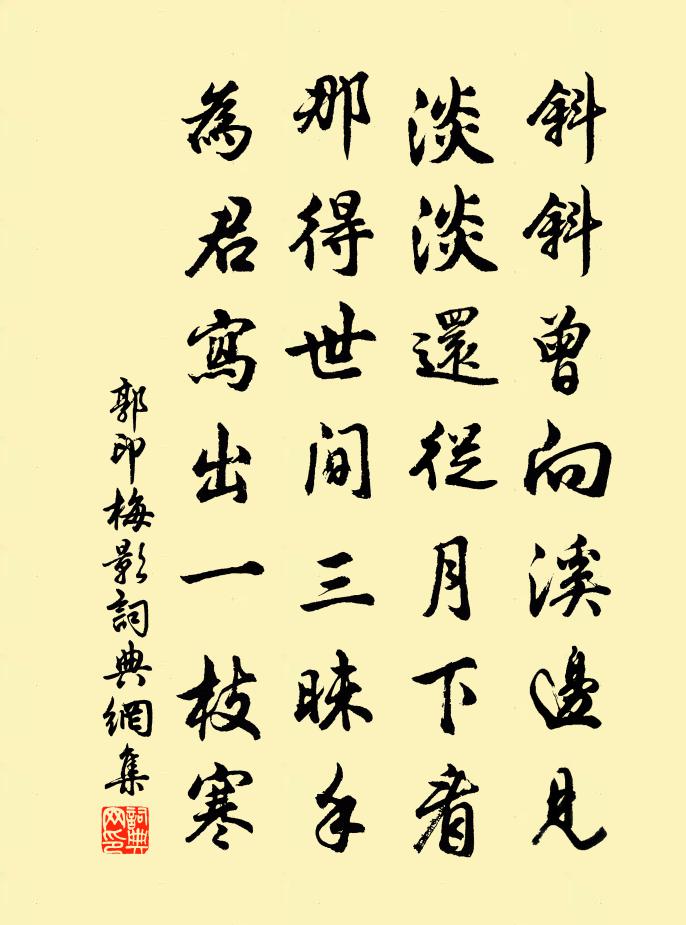 斜斜曾向溪邊見
淡淡還從月下看
那得世間三昧手
為君寫出一枝寒
郭印梅影詞典網集
詞典網印